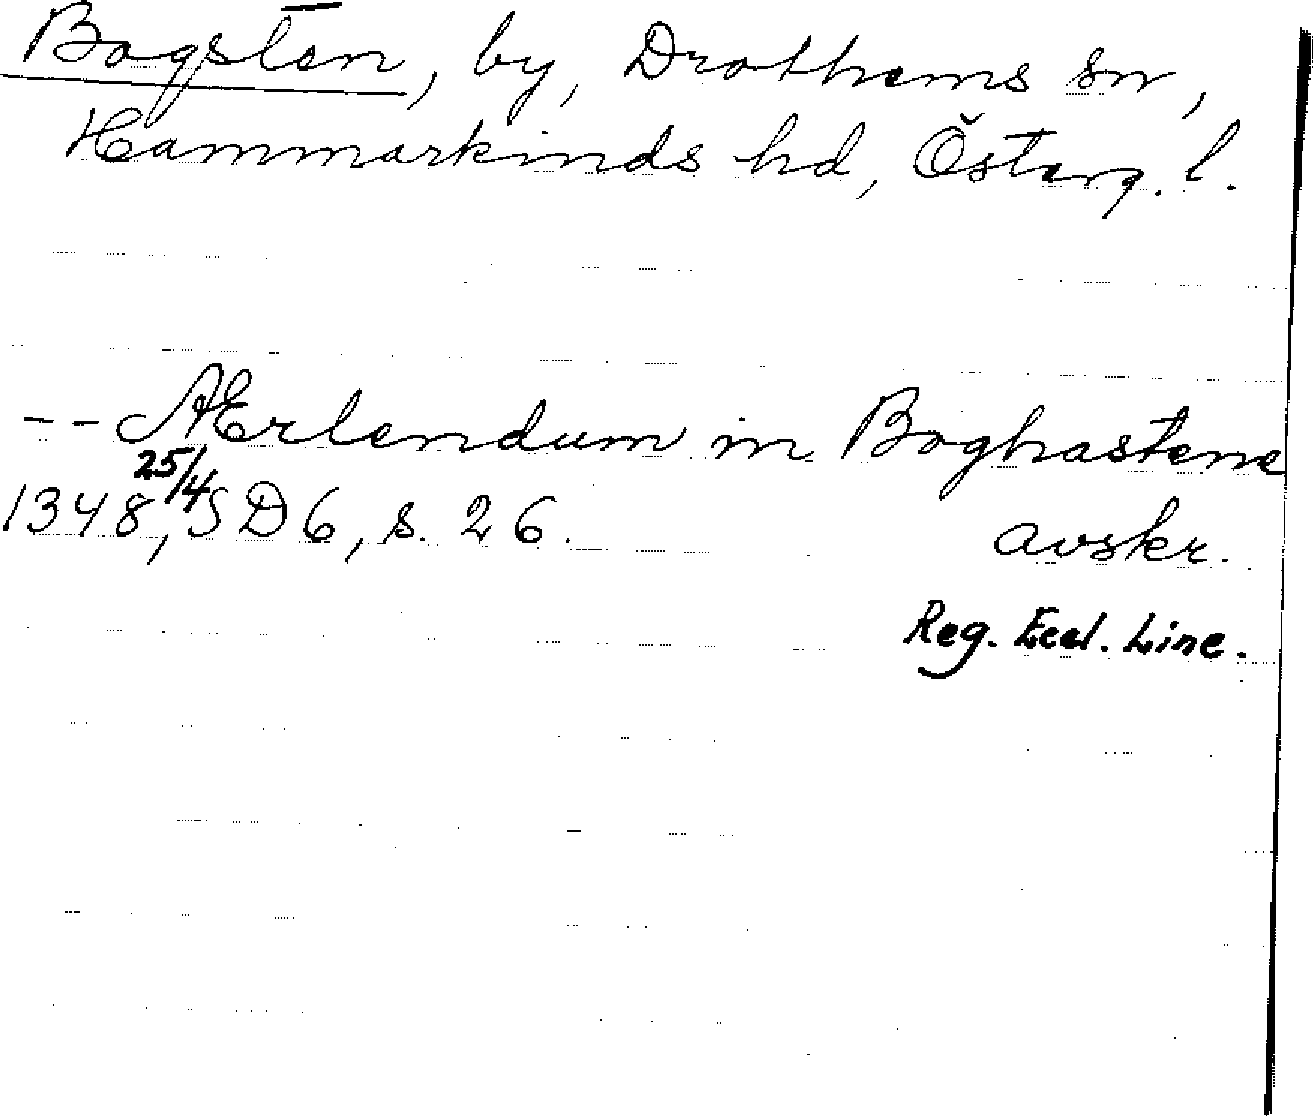 Bogsten, by, Drothems sn,
Hammarkinds hd, Österg. l.
-- Ærlendum in Boghastene
1348 25/4, SD 6, s. 26. avskr.
Reg. Eccl. Linc.